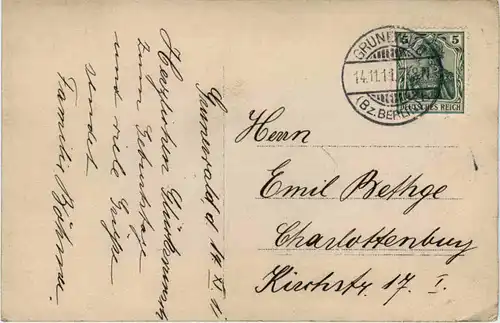 Grunewald d. 14. XI. 11.
Herzlichen Glückwunsch
zum Geburtstage
und viele Grüße
sendet
Familie Böhme.
GRUNEWALD
14.11.11.
(Bz. BERLIN)
5
DEUTSCHES REICH
Herrn
Emil Bethge
Charlottenburg
Kirchstr. 17. I.